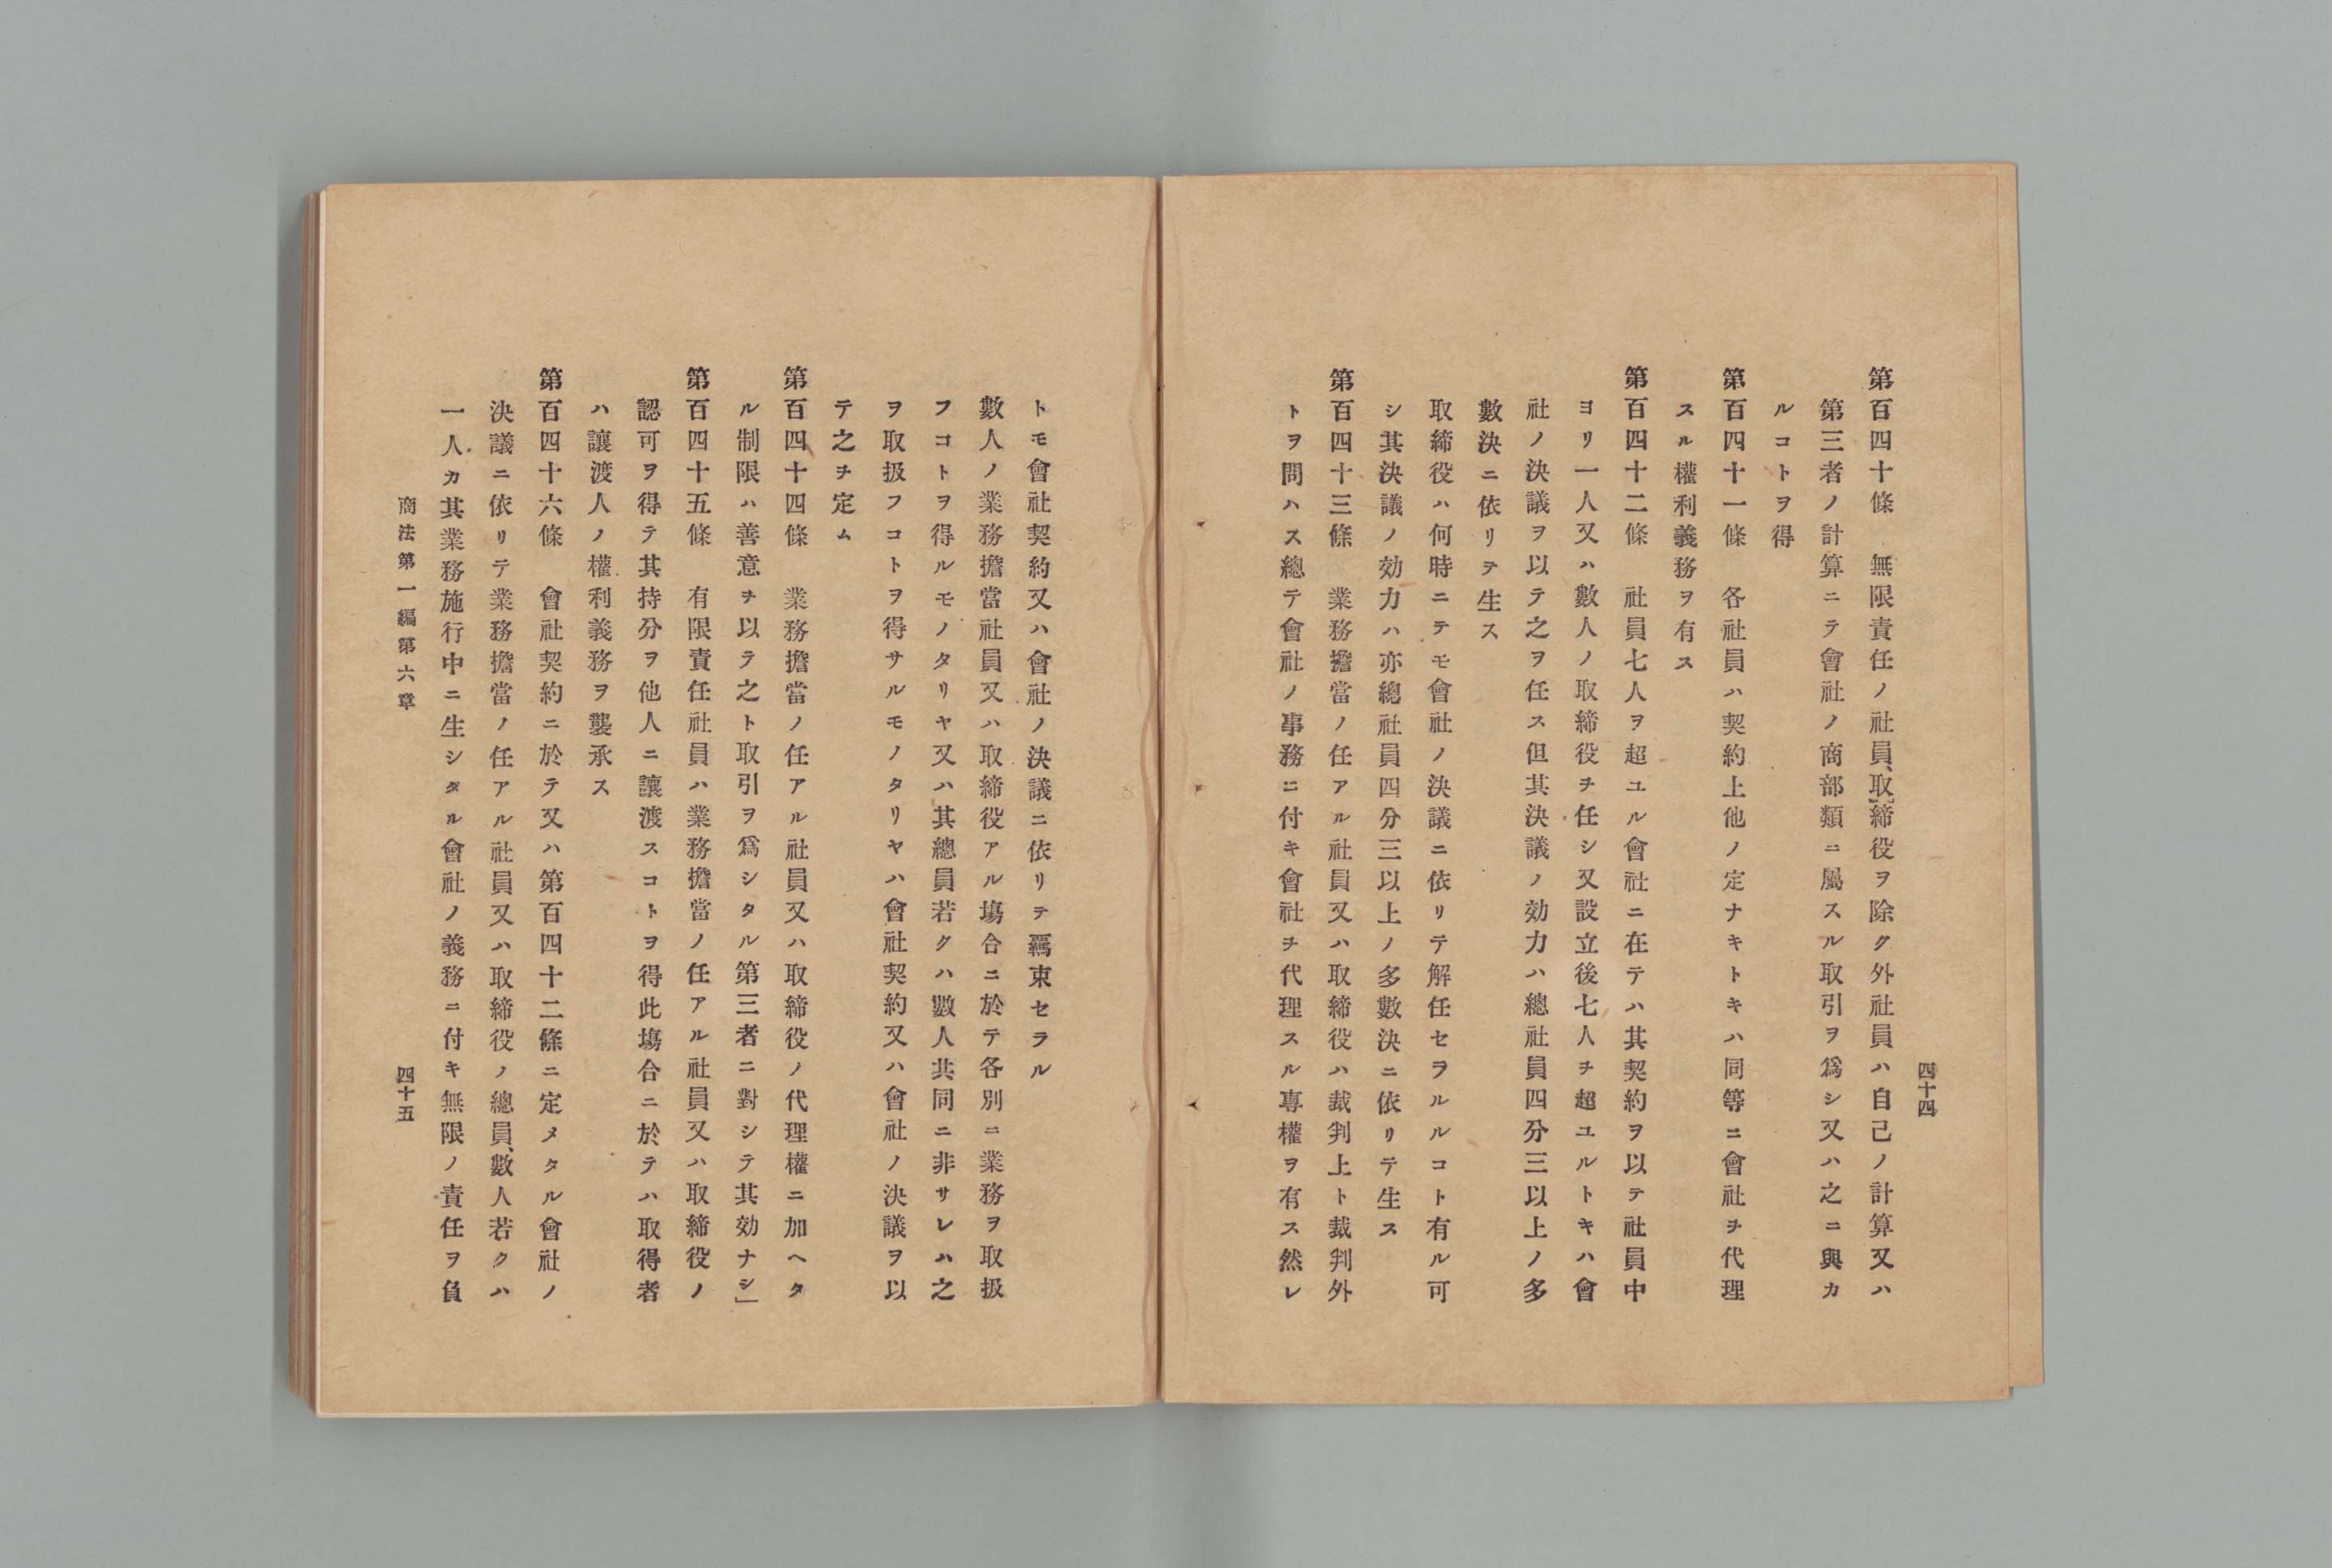 四十四
第百四十條　無限責任ノ社員、取締役ヲ除ク外社員ハ自己ノ計算又ハ
第三者ノ計算ニテ會社ノ商部類ニ屬スル取引ヲ爲シ又ハ之ニ與カ
ルコトヲ得
第百四十一條　各社員ハ契約上他ノ定ナキトキハ同等ニ會社ヲ代理
スル權利義務ヲ有ス
第百四十二條　社員七人ヲ超ユル會社ニ在テハ其契約ヲ以テ社員中
ヨリ一人又ハ數人ノ取締役ヲ任シ又設立後七人ヲ超ユルトキハ會
社ノ決議ヲ以テ之ヲ任ス但其決議ノ効力ハ總社員四分三以上ノ多
數決ニ依リテ生ス
取締役ハ何時ニテモ會社ノ決議ニ依リテ解任セラルルコト有ル可
シ其決議ノ効力ハ亦總社員四分三以上ノ多數決ニ依リテ生ス
第百四十三條　業務擔當ノ任アル社員又ハ取締役ハ裁判上ト裁判外
トヲ問ハス總テ會社ノ事務ニ付キ會社ヲ代理スル專權ヲ有ス然レ
トモ會社契約又ハ會社ノ決議ニ依リテ羈束セラル
數人ノ業務擔當社員又ハ取締役アル塲合ニ於テ各別ニ業務ヲ取扱
フコトヲ得ルモノタリヤ又ハ其總員若クハ數人共同ニ非サレハ之
ヲ取扱フコトヲ得サルモノタリヤハ會社契約又ハ會社ノ決議ヲ以
テ之ヲ定ム
第百四十四條　業務擔當ノ任アル社員又ハ取締役ノ代理權ニ加ヘタ
ル制限ハ善意ヲ以テ之ト取引ヲ爲シタル第三者ニ對シテ其効ナシ」
第百四十五條　有限責任社員ハ業務擔當ノ任アル社員又ハ取締役ノ
認可ヲ得テ其持分ヲ他人ニ讓渡スコトヲ得此塲合ニ於テハ取得者
ハ讓渡人ノ權利義務ヲ襲承ス
第百四十六條　會社契約ニ於テ又ハ第百四十二條ニ定メタル會社ノ
決議ニ依リテ業務擔當ノ任アル社員又ハ取締役ノ總員、數人若クハ
一人カ其業務施行中ニ生シタル會社ノ義務ニ付キ無限ノ責任ヲ負
商法第一編第六章
四十五